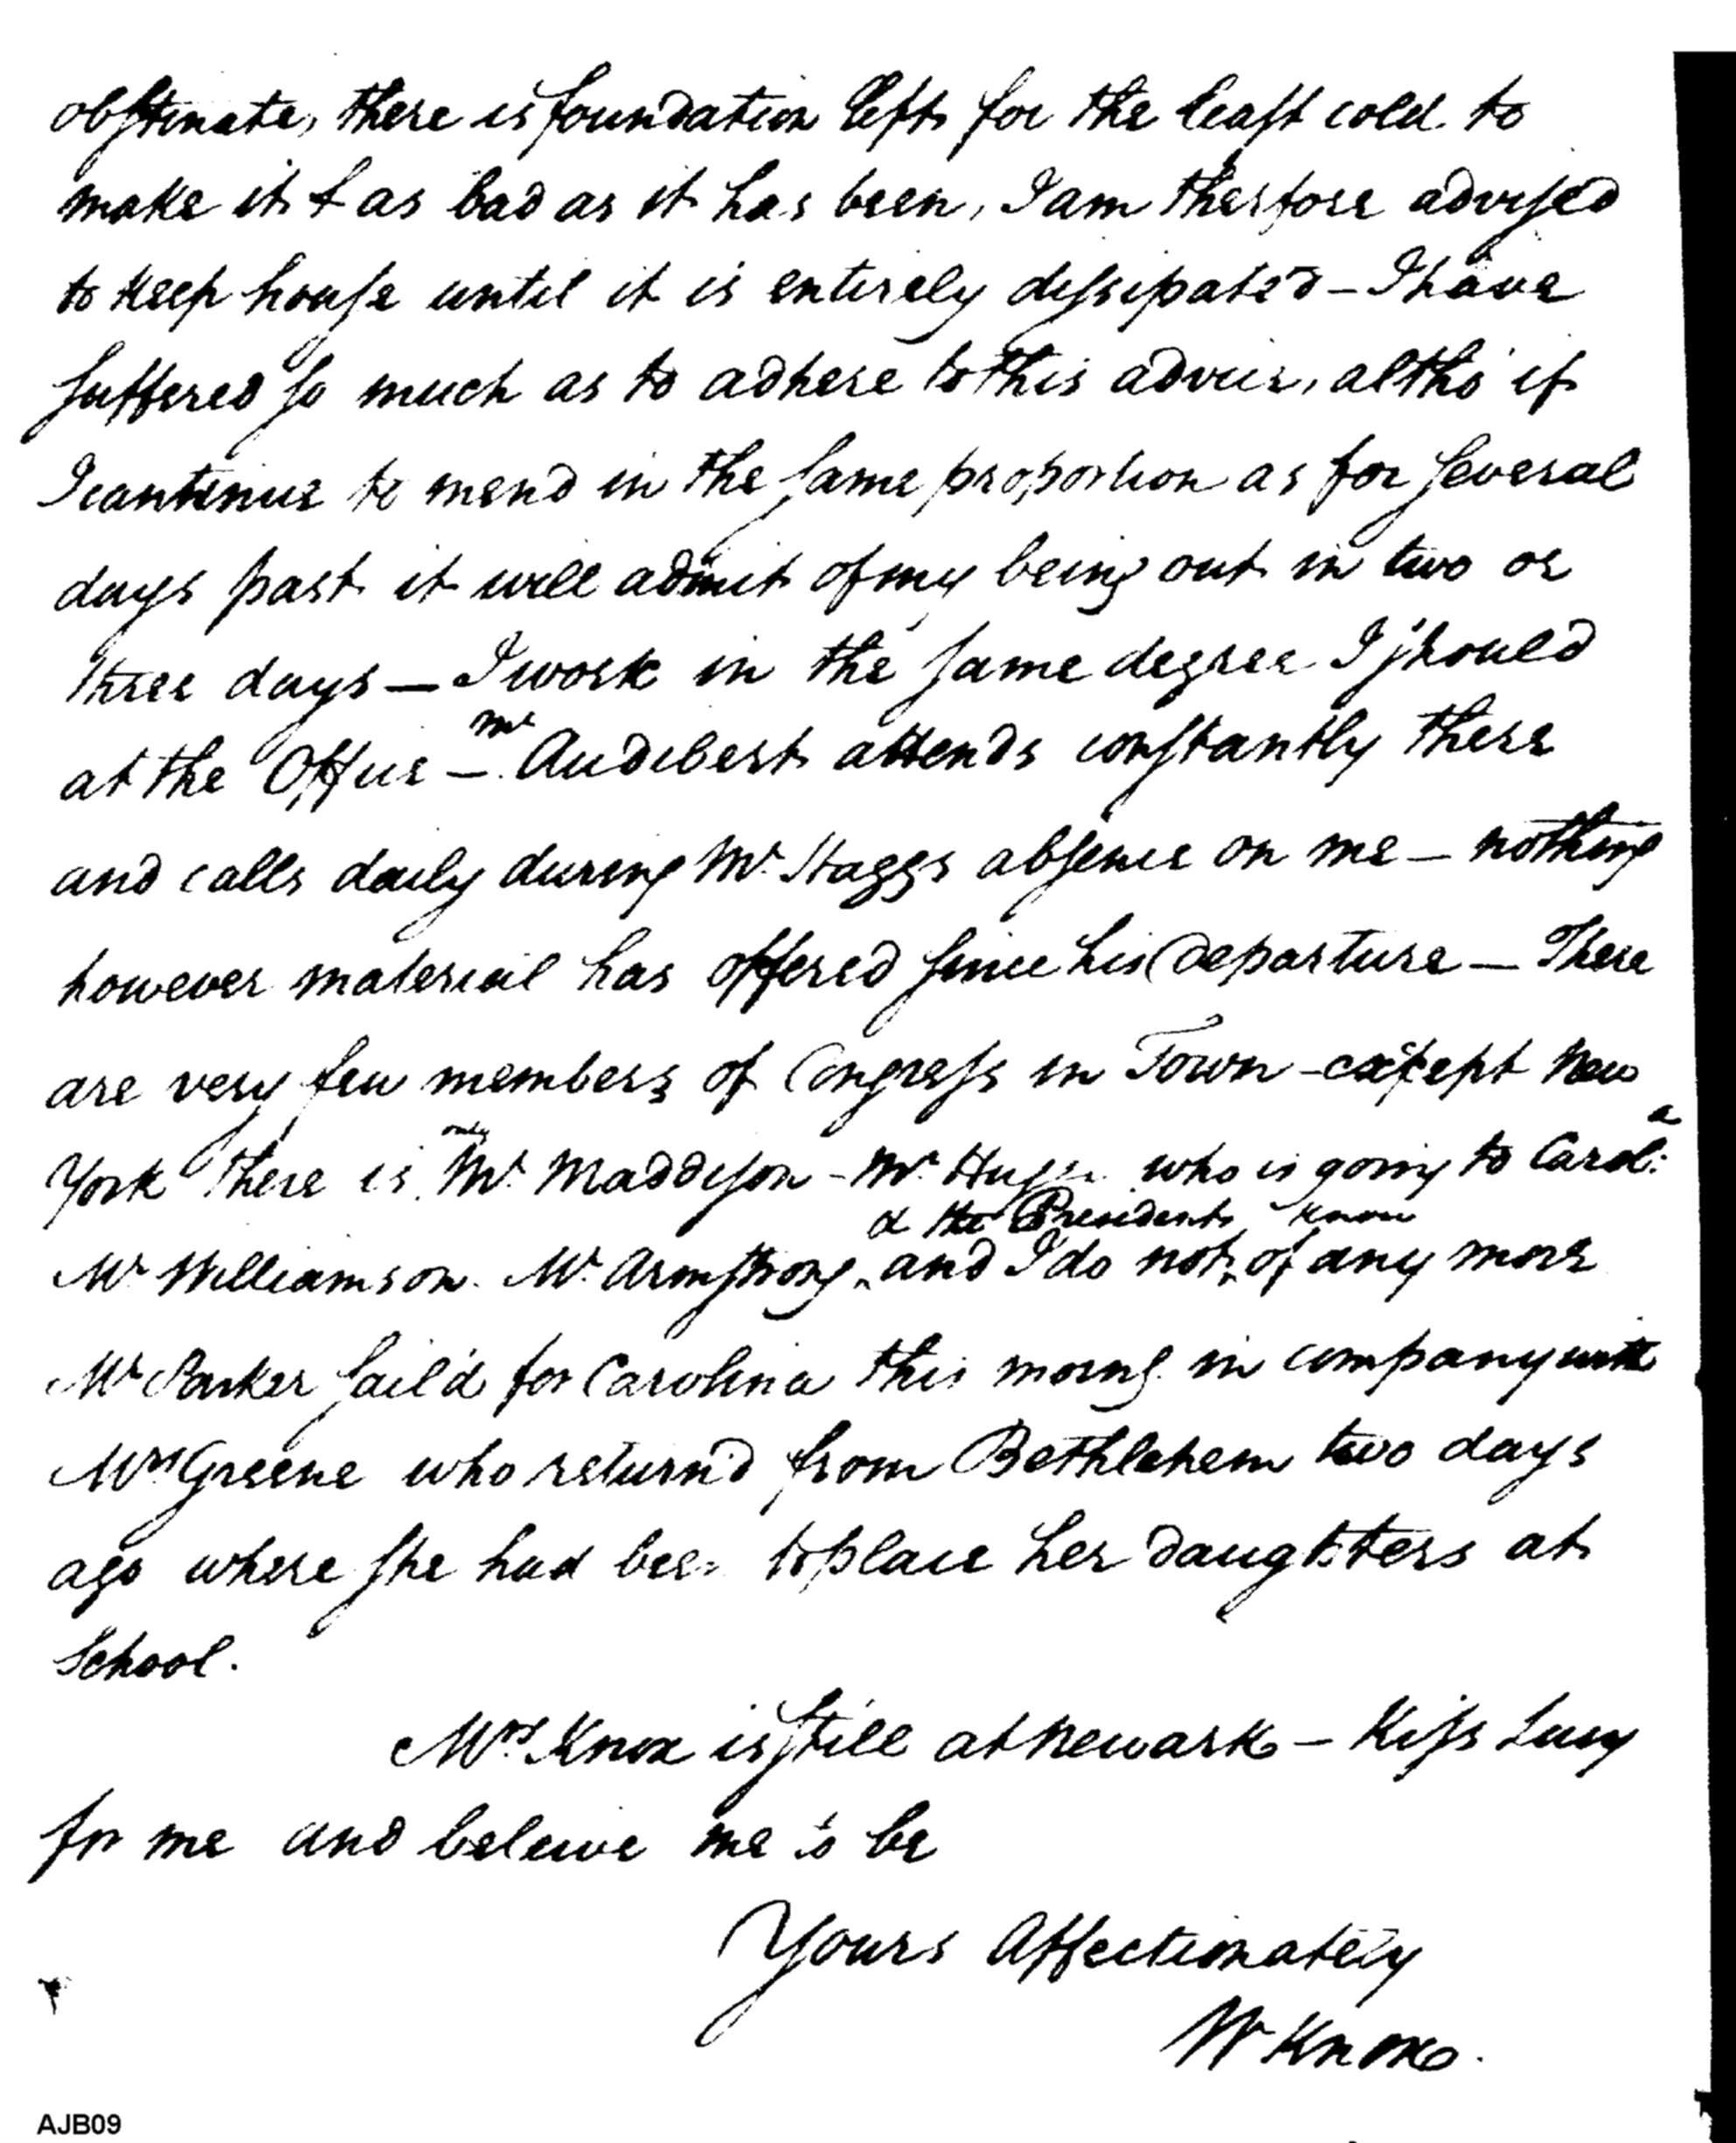 obstinate, there is foundation left for the least cold to
make it & as bad as it has been, I am therfore advised
to keep house until it is entirely dissipated - I have
suffered so much as to adhere to this advice, altho' if
I continue to mend in the same proportion as for several
days past it will admit of my being out in two or
three days — I work in the same degree I should
at the Office — Mr Audibert attends constantly there
and calls daily during Mr Staggs absence on me — nothing
however material has offered since his departure — There
are very few members of Congress in Town - except New
York there is only Mr Maddison - Mr who is going to Carola
& the Presidents know
Mr Williamson. Mr Armstrong and I do not of any more
Mr Parker sail'd for Carolina this morng in company with
Mrs Greene who return'd from Bethlehem two days
ago where she had been to place her daughters at
School.
Mrs Knox is still at Newark - Kiss Lucy
for me and beleive me to be
Yours Affectionately
W Knox.
AJB09